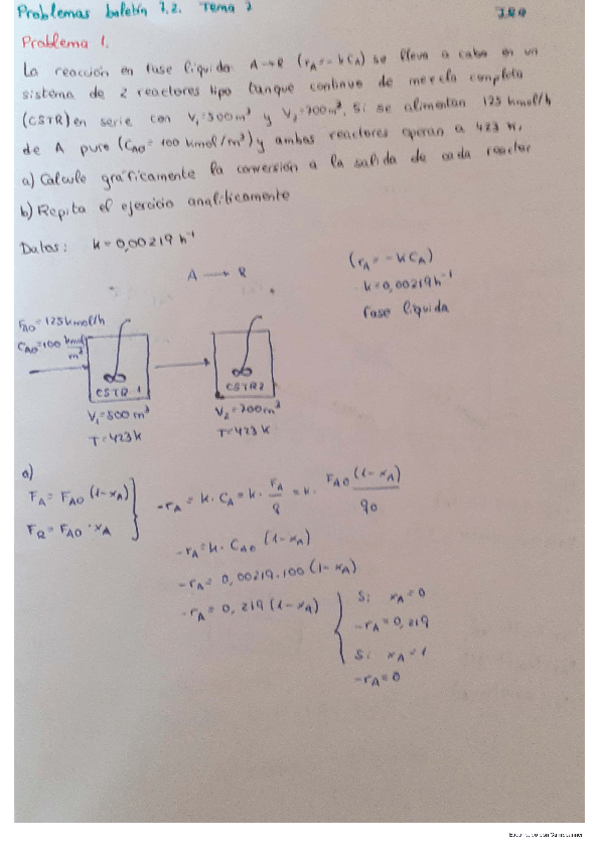 Problemas boletín 7.2. Tema 7
Problema 1.
La reacción en fase líquida A→R (rA=-kCA) se lleva a cabo en un
sistema de 2 reactores tipo tanque continuo de mezcla completa
(CSTR) en serie con V1=500m³ y V2=700m³. Si se alimentan 125 kmol/h
de A puro (CA0=100 kmol/m³) y ambos reactores operan a 423 K.
a) Calcule gráficamente la conversión a la salida de cada reactor
b) Repita el ejercicio analíticamente
Datos: k=0,00219 h⁻¹
A → R
(rA=-kCA)
k=0,00219h⁻¹
Fase líquida
FA0=125kmol/h
CA0=100 kmol/m³
CSTR 1
CSTR2
V1=500m³
T=423K
V2=700m³
T=423K
a)
FA=FA0(1-xA)
FR=FA0·xA
-rA=k·CA=k·FA/q=k·FA0(1-xA)/q0
-rA=k·CA0(1-xA)
-rA=0,00219·100(1-xA)
-rA=0,219(1-xA)
Si xA=0
-rA=0,219
Si xA=1
-rA=0